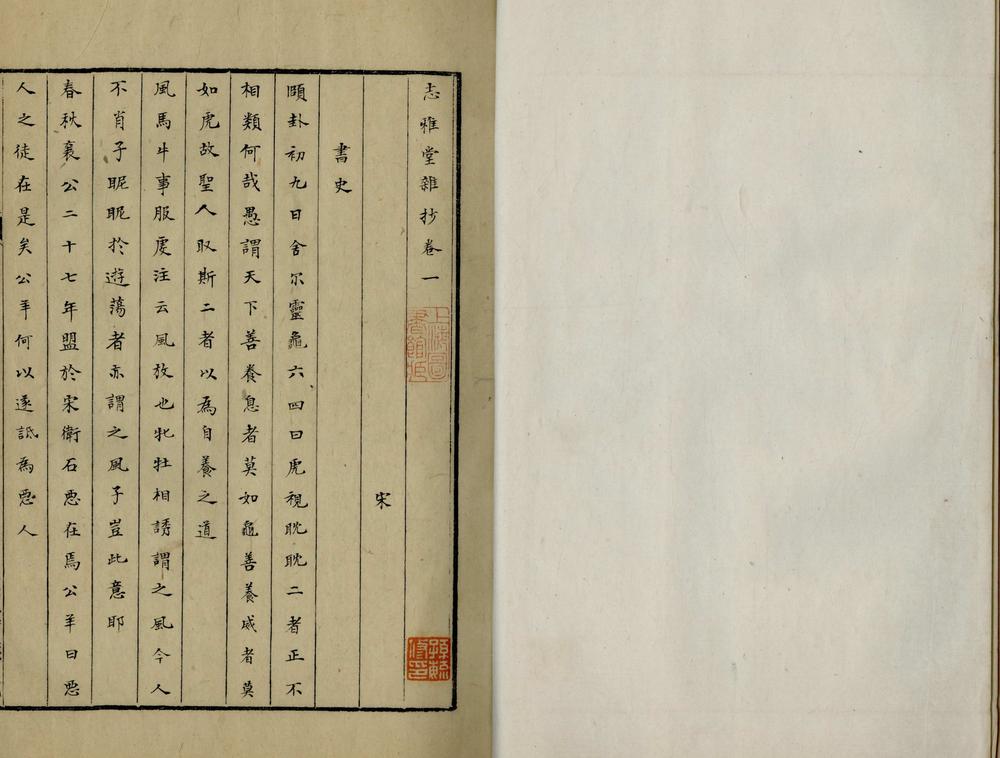 志雅堂雜抄卷一
宋
書史
頤卦初九日舍尓靈龜六四曰虎視眈眈二者正不
相類何哉愚謂天下善養息者莫如龜善養威者莫
如虎故聖人取斯二者以為自養之道
風馬牛事服虔注云風放也牝牡相誘謂之風今人
不肖子昵昵扵遊蕩者亦謂之風子豈此意耶
春秋襄公二十七年盟扵宋衛石惡在焉公羊曰惡
人之徒在是矣公羊何以遂詆為惡人
上海圖書館藏
孫毓修印